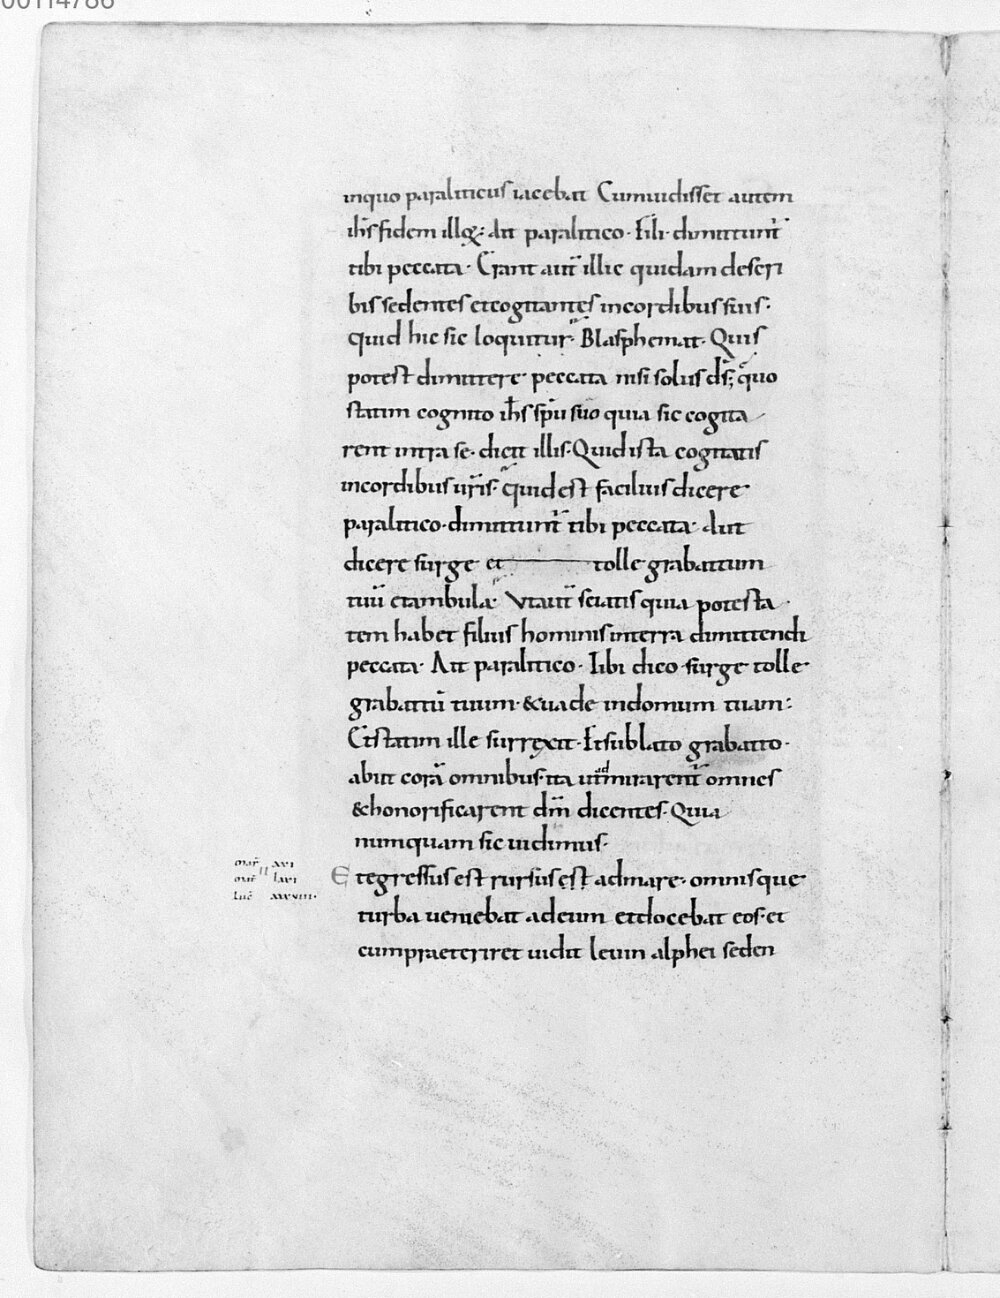 00114786
inquo paraliticus iacebat Cumuidisset autem
ih̄s fidem illoꝝ· Ait paralitico· Fili· dimittunt̄
tibi peccata· Erant aut̄ illic quidam descri
bis sedentes etcogitantes incordibus suis·
quid hic sic loquitur· Blasphemat· Quis
potest dimittere peccata nisi solus d̄s; quo
statim cognito ih̄s sp̄u suo quia sic cogita
rent intra se· dicit illis· Quid ista cogitatis
incordibus ur̄is· quid est facilius dicere
paralitico· dimittunt̄ tibi peccata· Aut
dicere surge et tolle grabattum
tuū etambula· Vt aut̄ sciatis quia potesta
tem habet filius hominis interra dimittendi
peccata· Ait paralitico· Tibi dico surge tolle
grabattū tuum· &uade indomum tuam·
Etstatim ille surrexit· Et sublato grabatto·
abiit corā omnibus· ita ut admirarent̄ omnes
&honorificarent dm̄ dicentes· Quia
numquam sic uidimus·
mar̄ xxi
mat̄ lxxi
II
Luc̄ xxxviii·
Etegressus est rursus est admare· omnisque
turba ueniebat adeum etdocebat eos· et
cumpraeteriret uidit leuin alphei seden